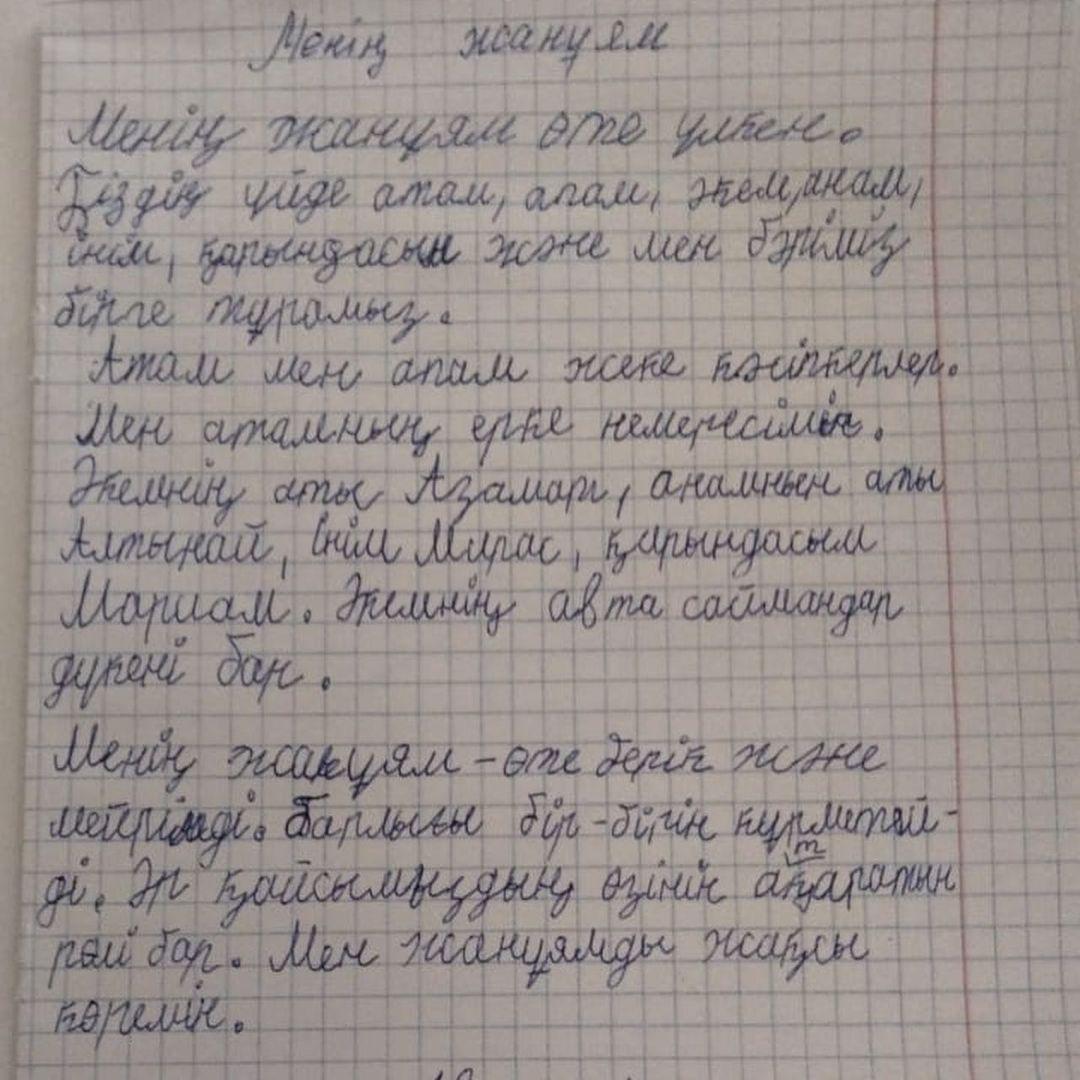 Менің жануям
Менің жануям өте үлкен.
Біздің үйде атам, апам, әкем, анам,
інім, қарындасым және мен бәріміз
бірге тұрамыз.
Атам мен апам жеке кәсіпкерлер.
Мен атамның ерке немересімін.
Әкемнің аты Азамат, анамнын аты
Алтынай, Інім Мирас, қарындасым
Мариам. Әкемнің авта саймандар
дүкені бар.
Менің жануям - өте берік және
мейрімді. Барлығы бір-бірін құрметтей-
ді. Әр қайсымыздың өзінін атқаратын
рөлі бар. Мен жануямды жақсы
көремін.